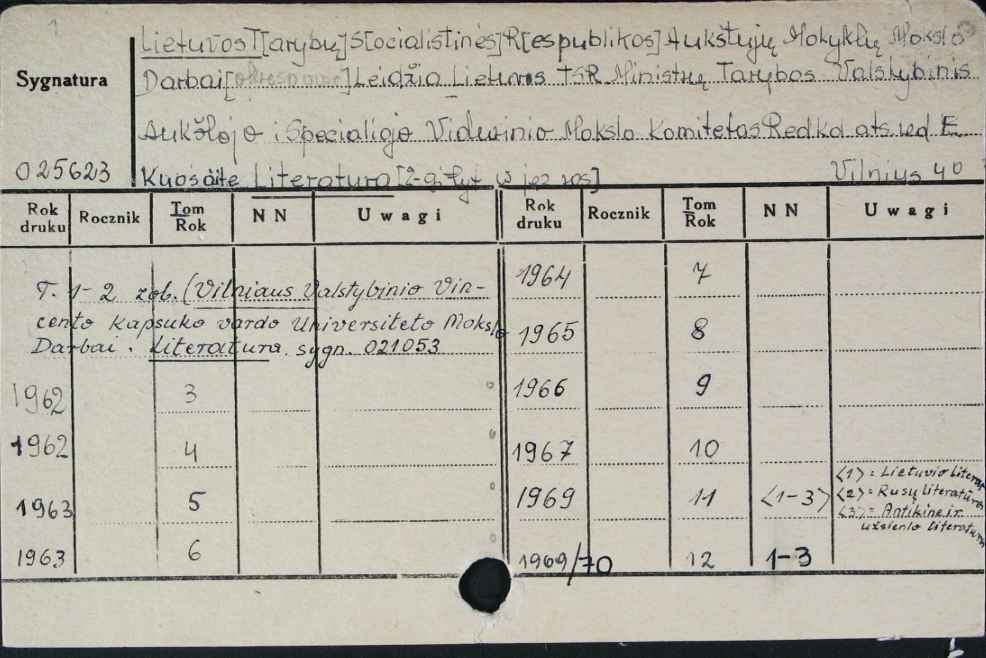 1
Lietuvos T[arybų] S[ocialistinės] R[espublikos] Aukštųjų Mokyklų Mokslo
Sygnatura
Darbai [okres. nieozn.] Leidžia Lietuvos TSR Ministrų Tarybos Valstybinis
Aukštojo i Specialiojo Vidurinio Mokslo Komitetas Red kol ats. red E.
025623
Kuosaite Literatura [2-gi tyt w jęz ros] Vilnius 40
Rok druku Rocznik Tom Rok NN Uwagi Rok druku Rocznik Tom Rok NN Uwagi
1964 7
T. 1-2 zob. (Vilniaus Valstybinio Vin-
cento Kapsuko vardo Universiteto Mokslo
1965 8
Darbai. Literatura. sygn. 021053
1962 3 1966 9
1962 4 1967 10
1963 5 1969 11 <1-3> <1> = Lietuvio literat
<2> = Rusų literatūra
<3> = Antikinė ir
užsienio literatura
1963 6 1969/70 12 1-3